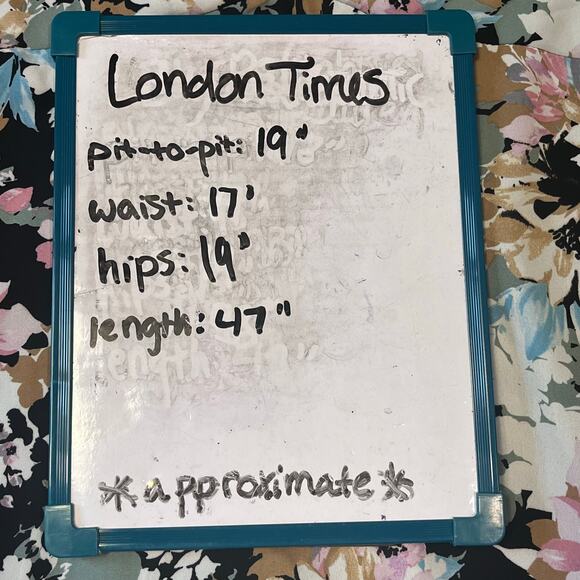 London Times
pit-to-pit: 19"
waist: 17'
hips: 19"
length: 47"
*approximate*